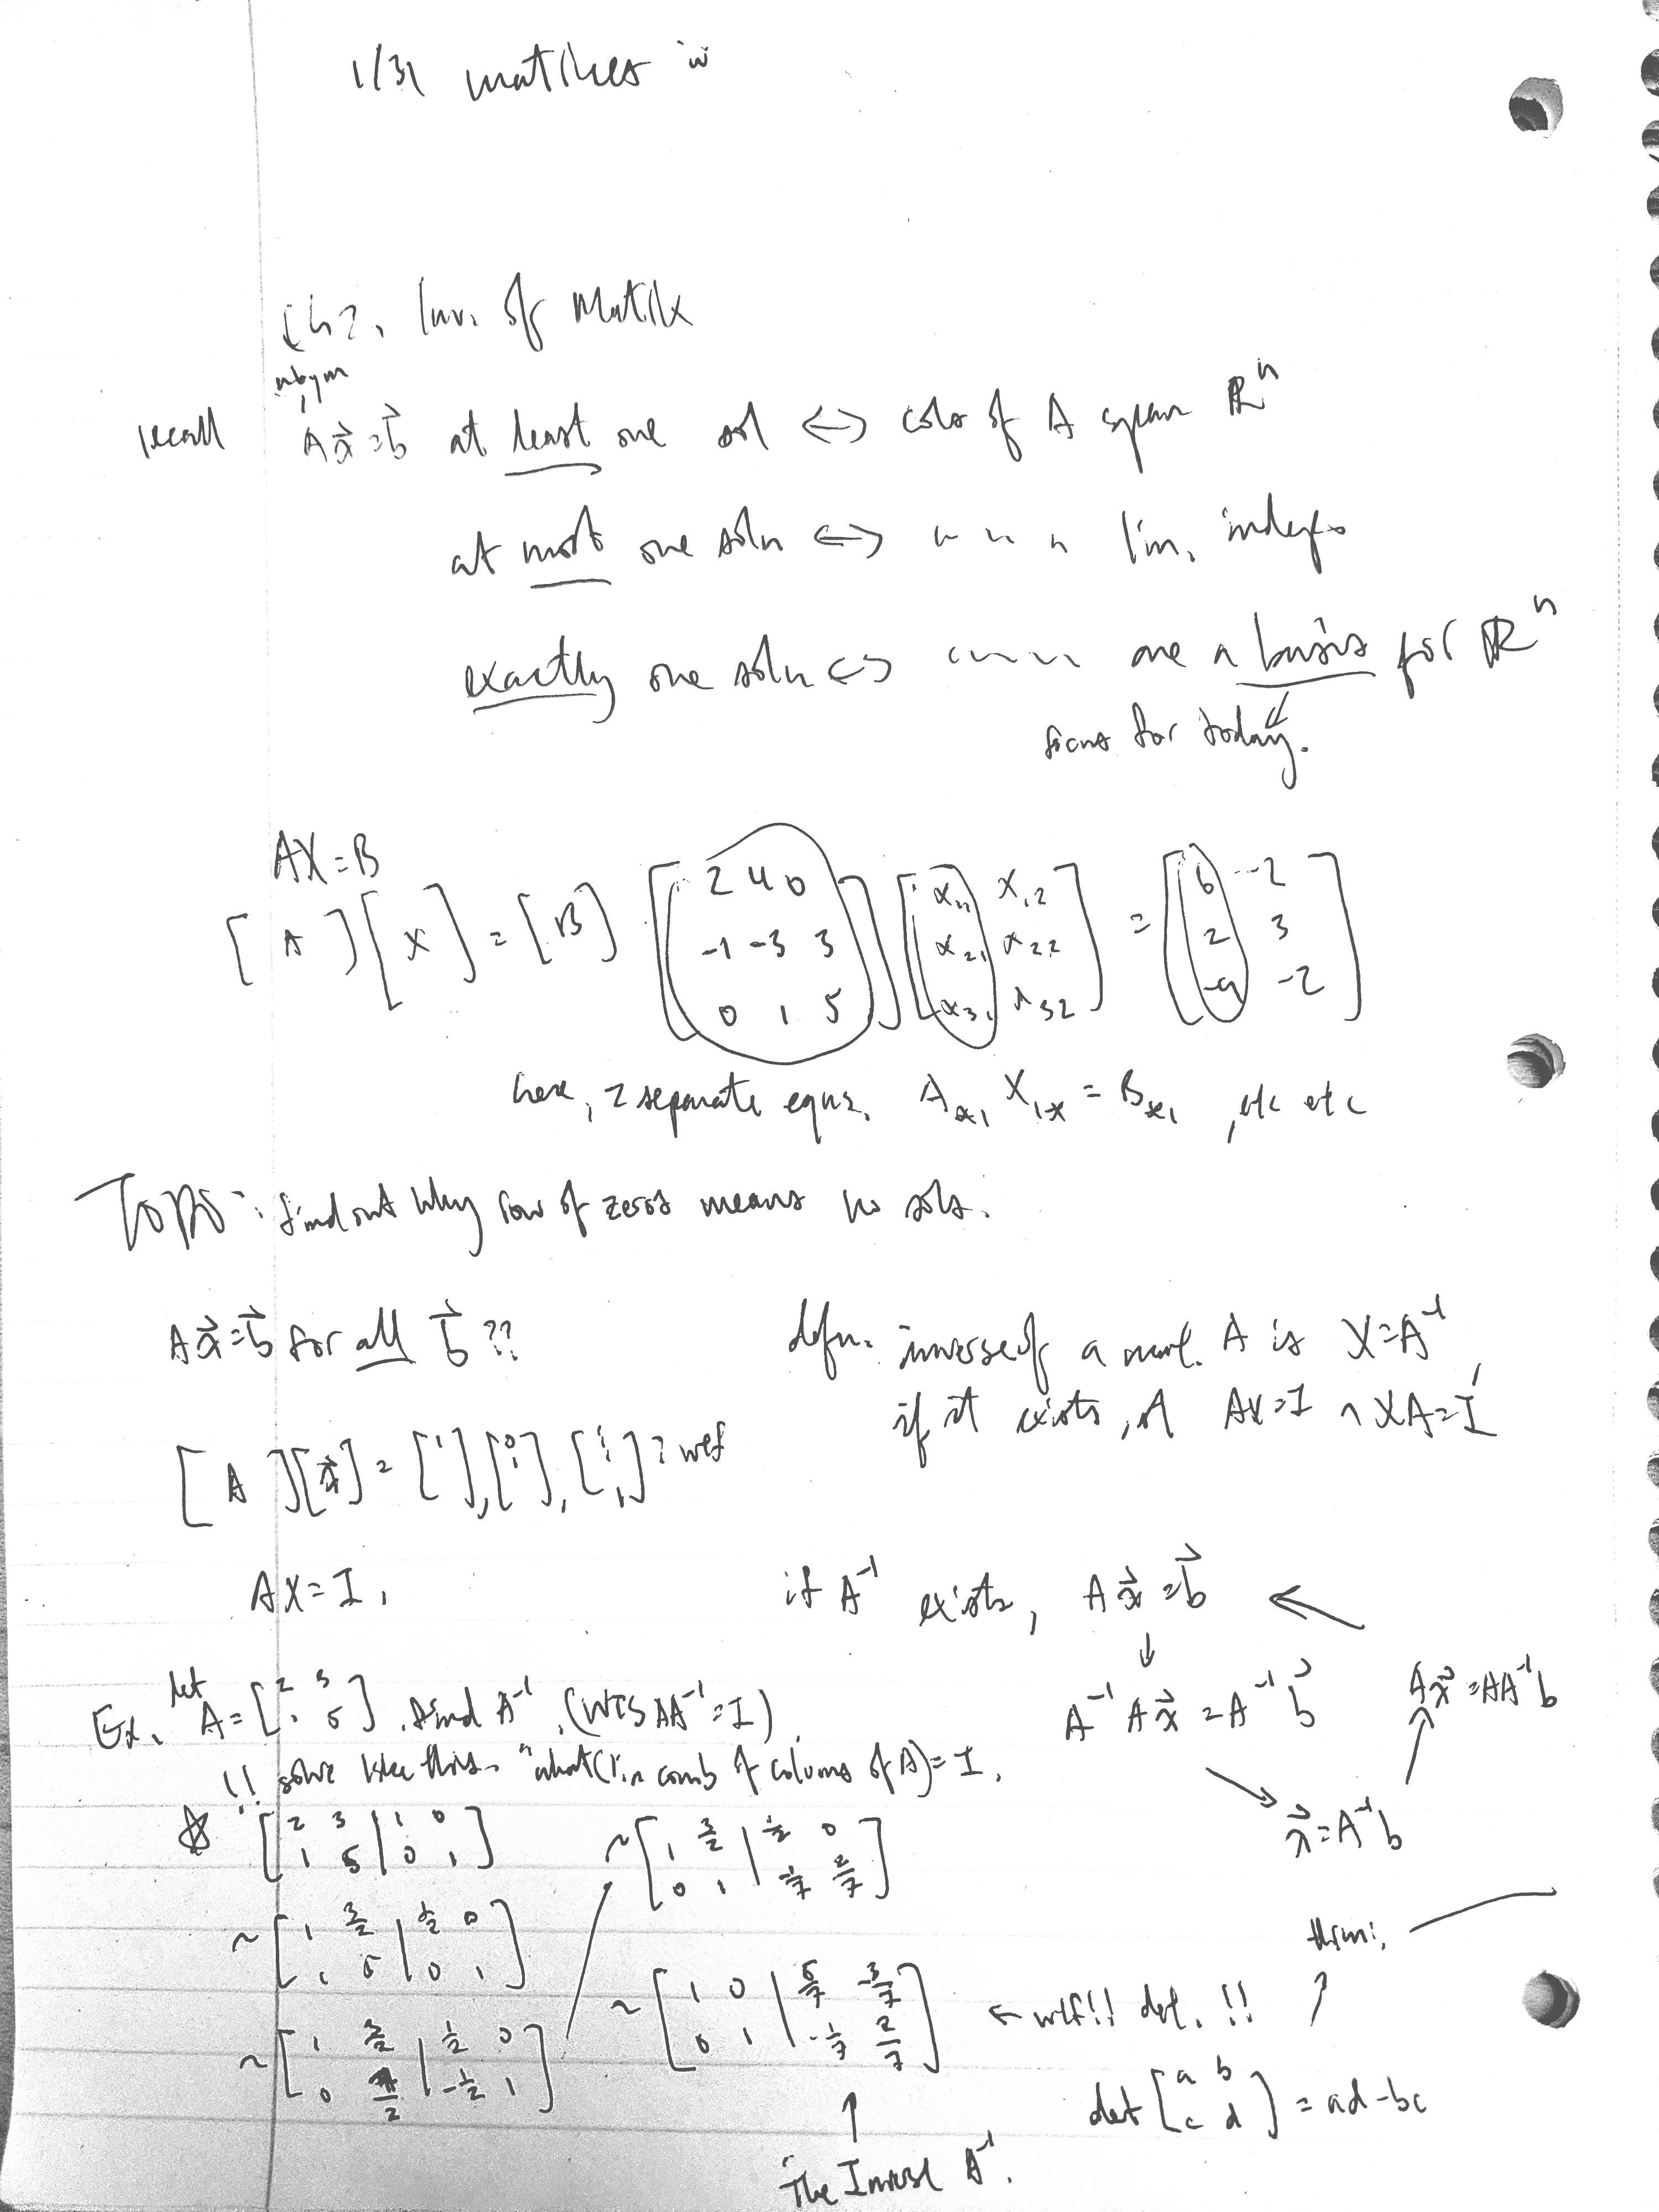 1/31 matrices
Ch 2. Inv. of Matrix
n by m
recall Ax⃗=b⃗ at least one sol ⟷ cols of A span ℝⁿ
at most one soln ⟷ " " " lin. indep.
exactly one soln ⟷ " " " are a basis for ℝⁿ
focus for today.
AX=B
[A][X]=[B] [2 4 0; -1 -3 3; 0 1 5][x₁₁ x₁₂; x₂₁ x₂₂; x₃₁ x₃₂] = [6 -2; 2 3; -9 -2]
here, 2 separate eqns. A X = B , etc etc
TODO: find out why row of zeros means no sols.
Ax⃗=b⃗ for all b⃗??
defn. inverse of a mat. A is X=A⁻¹
if it exists, AX=I ∧ XA=I
[A][x⃗]=[1 ],[0 1 ],[ 1]? wtf
AX=I,
if A⁻¹ exists, Ax⃗=b⃗
A⁻¹Ax⃗=A⁻¹b⃗
Ax⃗=AA⁻¹b
x⃗=A⁻¹b
Ex. let A=[2 3; 1 5]. find A⁻¹. (WTS AA⁻¹=I)
!! solve like this. "what (lin comb of columns of A)=I.
☆ [2 3 | 1 0; 1 5 | 0 1]
~[1 3/2 | 1/2 0; 1 5 | 0 1]
~[1 3/2 | 1/2 0; 0 7/2 | -1/2 1]
~[1 3/2 | 1/2 0; 0 1 | -1/7 2/7]
~[1 0 | 5/7 -3/7; 0 1 | -1/7 2/7] ← wtf!! det. !!
The Inverse A⁻¹.
thm:
det[a b; c d] = ad-bc